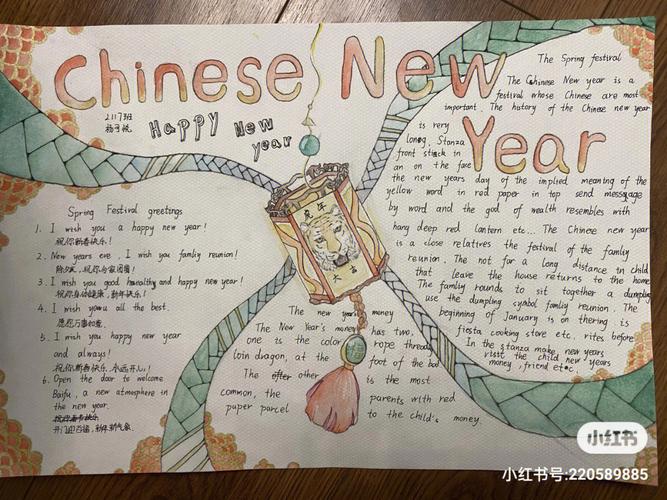 Chinese New
Year
2117班
Happy New
year
虎年
大吉
Spring Festival greetings
1. I wish you a happy new year!
祝你新春快乐!
2. New years eve, I wish you famliy reunion!
除夕夜,祝你与家团圆!
3. I wish you good healthy and happy new year!
祝你身体健康,新年快乐!
4. I wish you all the best.
愿您万事如意.
5. I wish you happy new year
and always!
祝你新春快乐,永远开心!
6. Open the door to welcome
Baifu, a new atmosphere in
the new year.
开门迎百福,新年新气象
The Spring festival
The Chinese New year is a
festival whose Chinese are most
important. The history of the Chinese new year
is very
long. Stanza
front stick in
an on the fare
the new years day of the implied meaning of the
yellow word in red paper in top send message
by word and the god of wealth resembles with
hang deep red lantern etc... The Chinese new year
is a close relatives the festival of the famliy
reunion. The not for a long distance in child
that leave the house returns to the home
The famliy rounds to sit together a dumpling
use the dumpling symbol famliy reunion. The
beginning of January is on thering is
fiesta cooking store etc. rites before
In the stanza make new years
visit the child new years
money, friend etc.
The new year money
The New Year's money has two,
one is the color rope thready
loin dragon, at the foot of the bed
The other is the most
common, the parents with red
puper parcel to the child's money.
小红书
小红书号:220589885